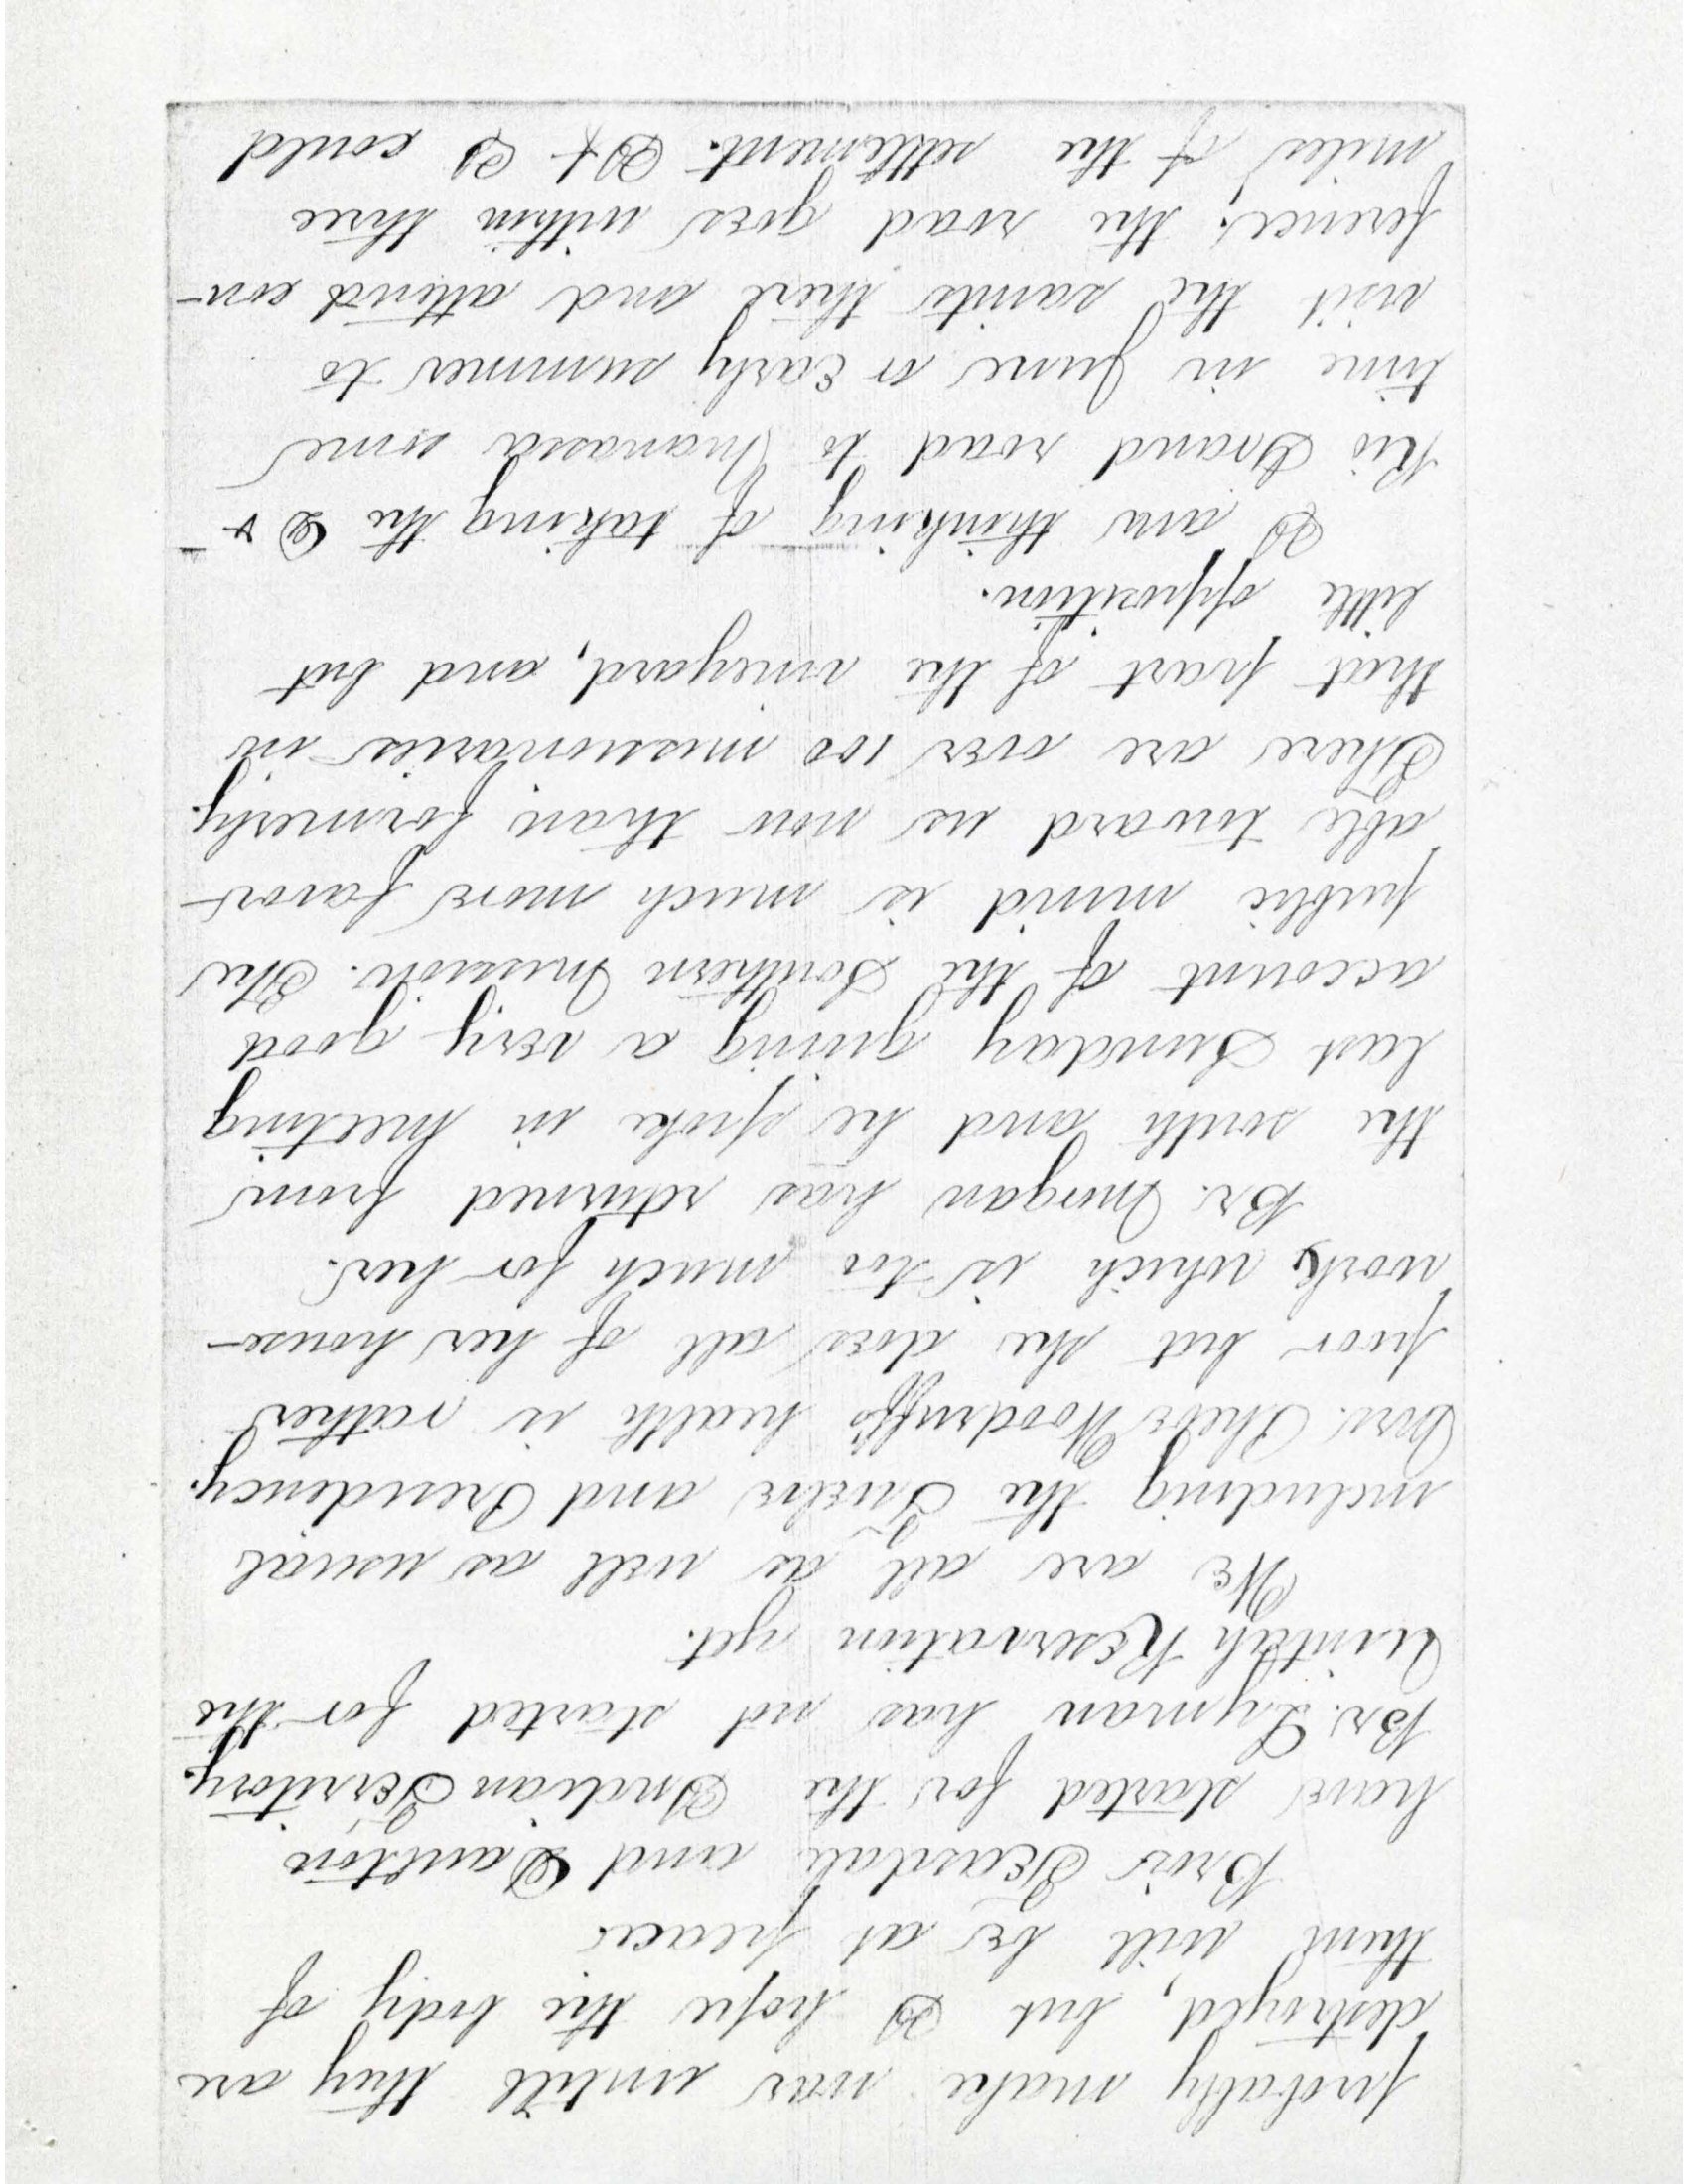 probably make war untill they are
destroyed, but I hope the body of
them will be at peace.
Bro's Teasdale and Daulton
have started for the Indian Territory.
Br. Lyman has not started for the
Uintah Reservation yet.
We are all as well as usual
including the Twelve and Presidency.
Mrs. Phebe Woodruff's health is rather
poor but she does all of her house-
work, which is too much for her.
Br. Morgan has returned from
the south and he spoke in meeting
last Sunday giving a very good
account of the Southern Mission. The
public mind is much more favor-
able toward us now than formerly.
There are over 100 missionaries in
that part of the vineyard, and but
little opposition.
I am thinking of taking the D &
Rio Grand road to Manassa some
time in June or Early summer to
visit the saints there and attend con-
ference. the road goes within three
miles of the settlement. If I could